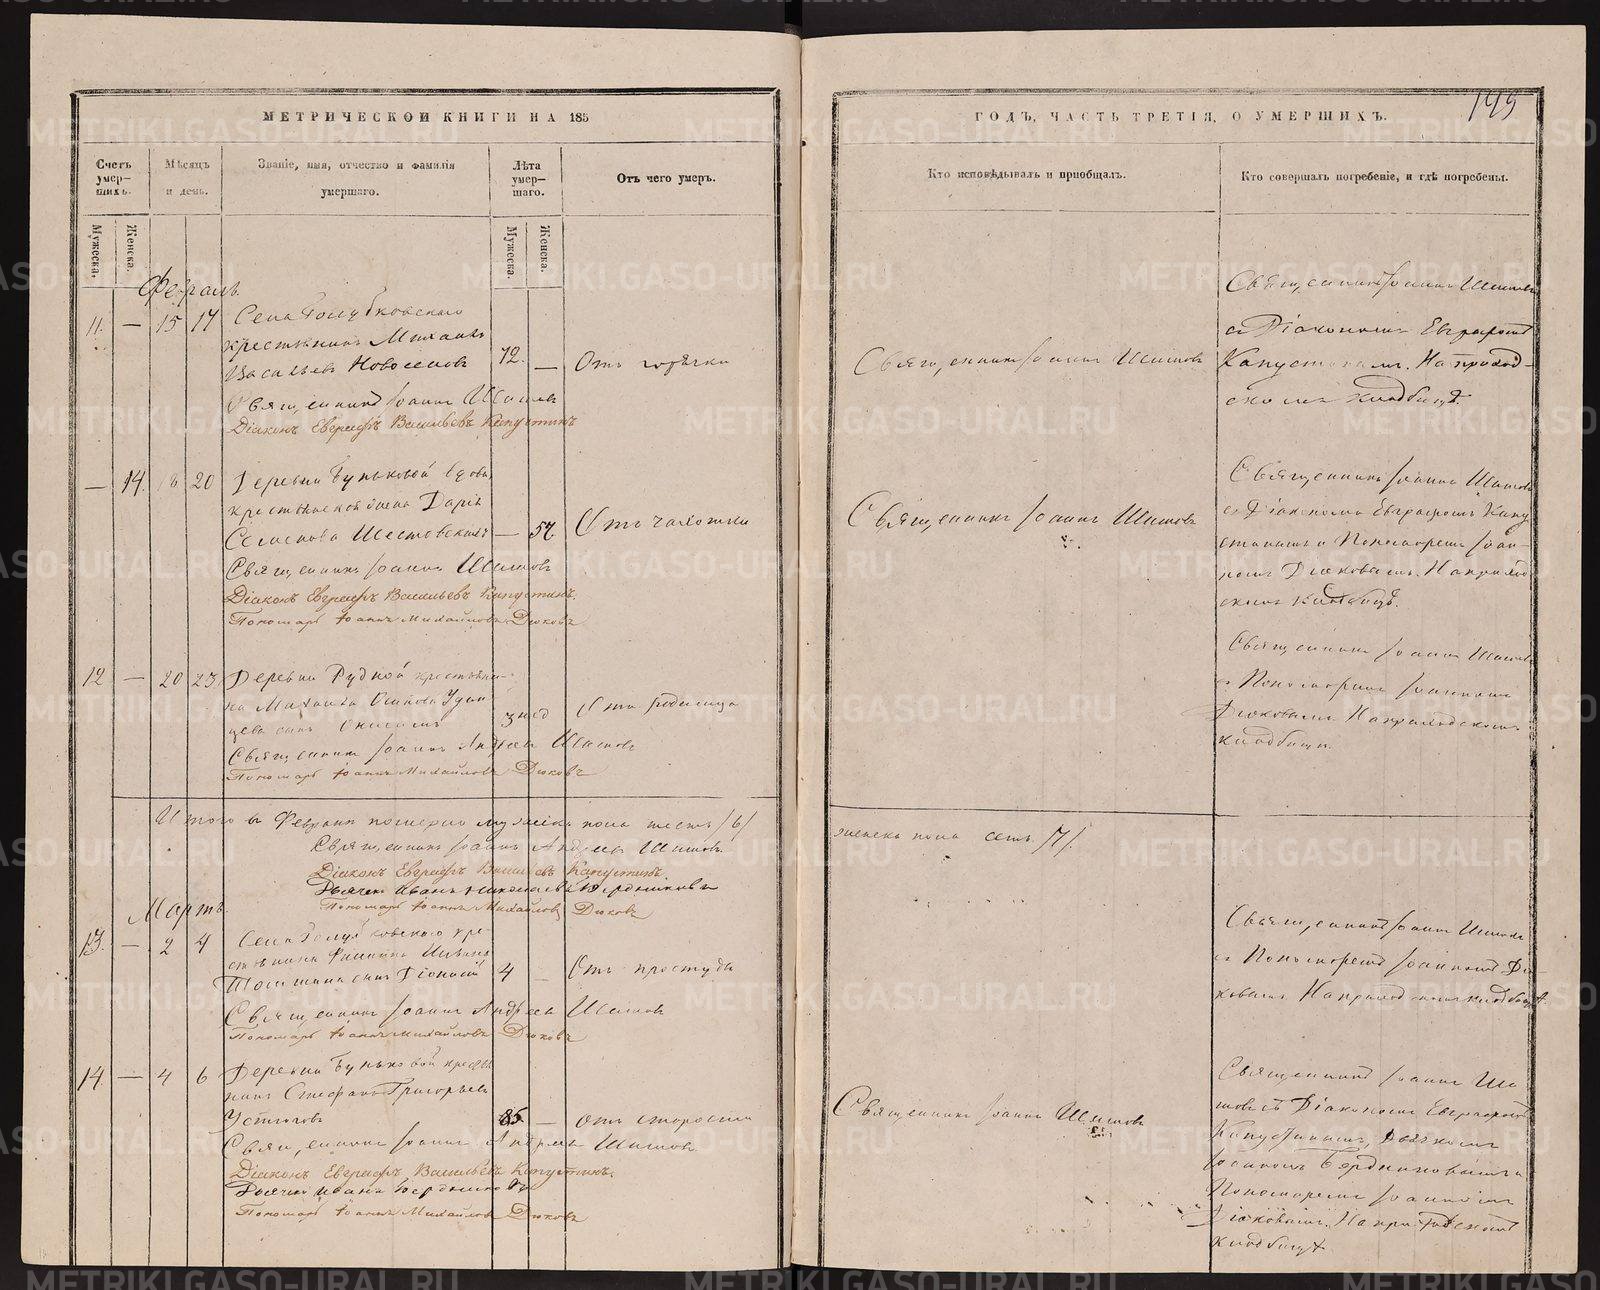 МЕТРИЧЕСКОЙ КНИГИ НА 185
Счетъ умер-шихъ.
Мѣсяцъ и день.
Званіе, имя, отчество и фамилія умершаго.
Лѣта умер-шаго.
Отъ чего умеръ.
Мужеска.
Женска.
Мужеска.
Женска.
Февраль
11. — 15 17 Села Голубковскаго
крестьянинъ Михаилъ
Васильевъ Новоселовъ 72. — Отъ горячки
Священникъ Іоаннъ Шишовъ
Діаконъ Евграфъ Васильевъ Капустинъ
— 14. 18 20 Деревни Буньковой вдова
крестьянская жена Дарья
Семенова Шестовскихъ — 57. Отъ чахотки
Священникъ Іоаннъ Шишовъ
Діаконъ Евграфъ Васильевъ Капустинъ.
Пономарь Іоаннъ Михайловъ Дюковъ
12 — 20 23 Деревни Рудной крестьяни-
на Михаила Осипова
сынъ 3 нед Отъ родимца
Священникъ Іоаннъ Андреевъ Шишовъ
Пономарь Іоаннъ Михайловъ Дюковъ
Итого въ Февралѣ померло мужеска пола шесть /6/
Священникъ Іоаннъ Андреевъ Шишовъ.
Діаконъ Евграфъ Васильевъ Капустинъ
Дьячекъ Иванъ Николаевъ Бердниковъ
Пономарь Іоаннъ Михайловъ Дюковъ
Мартъ
13. — 2 4 Села Голубковскаго кре-
стьянина Филиппа
сынъ Діонисій 4 — Отъ простуды
Священникъ Іоаннъ Андреевъ Шишовъ
Пономарь Іоаннъ Михайловъ Дюковъ
14. — 4 6 Деревни Буньковой крестья
нинъ Стефанъ Григорьевъ
Устюговъ 85 — отъ старости
Священникъ Іоаннъ Андреевъ Шишовъ.
Діаконъ Евграфъ Васильевъ Капустинъ.
Дьячекъ Иванъ Бердниковъ
Пономарь Іоаннъ Михайловъ Дюковъ
ГОДЪ, ЧАСТЬ ТРЕТІЯ, О УМЕРШИХЪ.
Кто исповѣдывалъ и пріобщалъ.
Кто совершалъ погребеніе, и гдѣ погребены.
Священникъ Іоаннъ Шишовъ
Священникъ Іоаннъ Шишовъ
съ Діакономъ Евграфомъ
Капустинымъ. На приход-
скомъ кладбищѣ.
Священникъ Іоаннъ Шишовъ
Священникъ Іоаннъ Шишовъ
съ Діакономъ Евграфомъ Капу
стинымъ и Пономаремъ Іоан-
номъ Дюковымъ. На приход
скомъ кладбищѣ.
Священникъ Іоаннъ Шишовъ
съ Пономаремъ Іоанномъ
Дюковымъ На приходскомъ
кладбищѣ.
женска пола семь /7/.
Священникъ Іоаннъ Шишовъ
съ Пономаремъ Іоанномъ Дю-
ковымъ На приходскомъ кладбищѣ.
Священникъ Іоаннъ Шишовъ
Священникъ Іоаннъ Ши
шовъ съ Діакономъ Евграфомъ
Капустинымъ, Дьячкомъ
Іоанномъ Бердниковымъ и
Пономаремъ Іоанномъ
Дюковымъ. На приходскомъ
кладбищѣ
METRIKI.GASO-URAL.RU